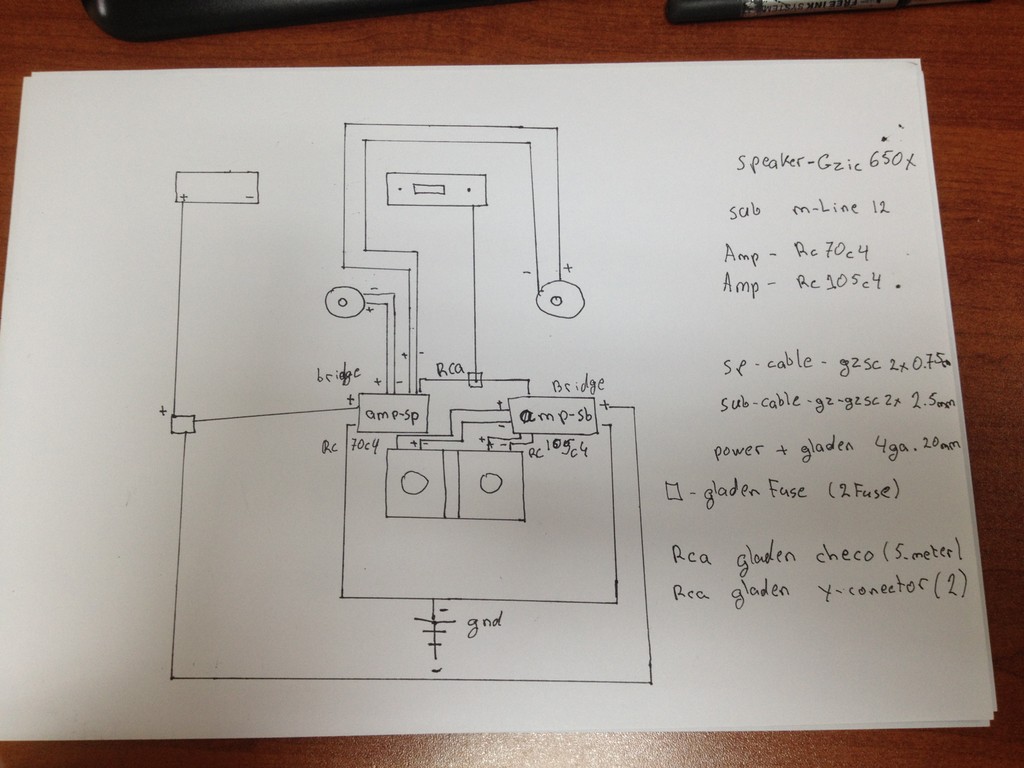 FREE INK SYSTEM
speaker-Gzic 650x
sub m-Line 12
Amp - Rc 70c4
Amp - Rc 105c4.
sp-cable-gzsc 2x0.75
sub-cable-gz-gzsc 2x 2.5mm
power + gladen 4ga.20mm
□-gladen Fuse (2Fuse)
Rca gladen checo (5.meter)
Rca gladen y-conector(2)
+ -
- +
- +
+ -
bridge + -
Rca
Bridge
+ + amp-sp
+ amp-sb +
-
Rc 70c4 + -
+ - Rc 105c4
- gnd
-